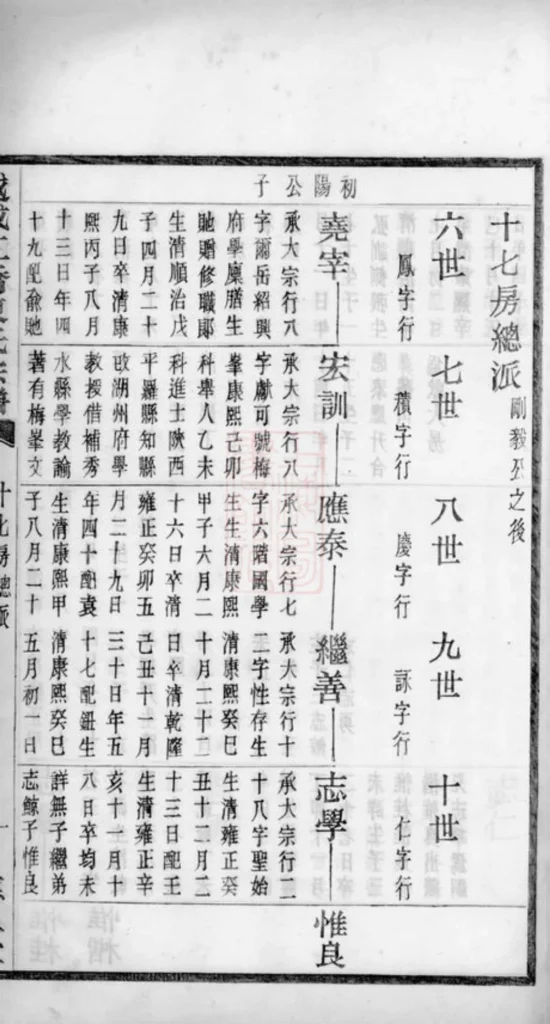 十七房總派 剛毅公之後
六世 七世 八世 九世 十世
鳳字行 積字行 慶字行 詠字行 仁字行
初陽公子
堯宰 宏訓 應泰 繼善 志學 惟良
承大宗行八
字爾岳紹興
府學廩膳生
貤贈修職郎
生清順治戊
子四月二十
九日卒清康
熙丙子八月
十三日年四
十九配俞貤
承大宗行八
字獻可號梅
峯康熙己卯
科舉人乙未
科進士陝西
平羅縣知縣
改湖州府學
教授借補秀
水縣學教諭
著有梅峯文
承大宗行七
字六階國學
生生清康熙
甲子六月二
十六日卒清
雍正癸卯五
月二十九日
年四十配袁
生清康熙甲
子八月二十
承大宗行十
二字性存生
清康熙癸巳
十月二十二
日卒清乾隆
己丑十一月
三十日年五
十七配鈕生
清康熙癸巳
五月初一日
承大宗行二
十八字聖始
生清雍正癸
丑十二月二
十三日配王
生清雍正辛
亥十一月十
八日卒均未
詳無子繼弟
志鯨子惟良
十七房總派